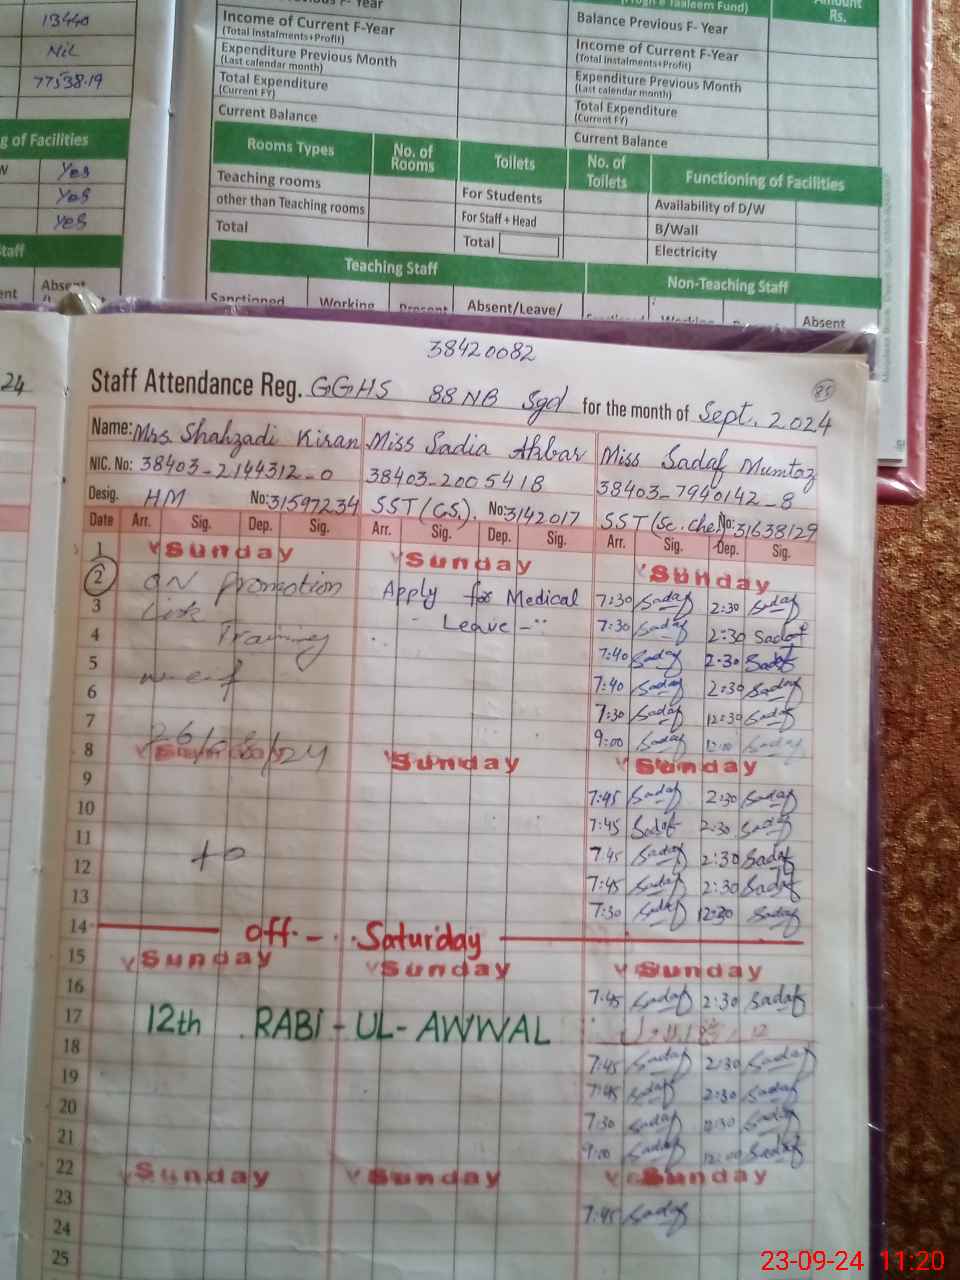 13440
Nil
77538.19
g of Facilities
Yes
Yes
Yes
taff
Income of Current F-Year
(Total Instalments+Profit)
Expenditure Previous Month
(Last calendar month)
Total Expenditure
(Current FY)
Current Balance
Amount Rs.
Balance Previous F- Year
Income of Current F-Year
(Total Instalments+Profit)
Expenditure Previous Month
(Last calendar month)
Total Expenditure
(Current FY)
Current Balance
Rooms Types No. of Rooms Toilets No. of Toilets Functioning of Facilities
Teaching rooms For Students Availability of D/W
other than Teaching rooms For Staff + Head B/Wall
Total Total Electricity
Teaching Staff Non-Teaching Staff
Sanctioned Working Present Absent/Leave/ Working Absent
38420082
24
Staff Attendance Reg. GGHS 88 NB Sgd for the month of Sept. 2024
85
Name: Mrs Shahzadi Kiran Miss Sadia Akbar Miss Sadaf Mumtaz
NIC. No: 38403-2144312-0 38403-2005418 38403-7940142-8
Desig. HM No: 31597234 SST (G.S). No: 3142017 SST (Sc. Che) No: 31638129
Date Arr. Sig. Dep. Sig. Arr. Sig. Dep. Sig. Arr. Sig. Dep. Sig.
1 Sunday Sunday Sunday
2 ON Promotion Apply for Medical 7:30 Sadaf 2:30 Sadaf
3 Link Leave 7:30 Sadaf 2:30 Sadaf
4 Training 7:40 Sadaf 2:30 Sadaf
5 w.e.f 7:40 Sadaf 2:30 Sadaf
6 7:30 Sadaf 12:30 Sadaf
7 26/08/24 9:00 Sadaf 12:00 Sadaf
8 Sunday Sunday Sunday
9 7:45 Sadaf 2:30 Sadaf
10 7:45 Sadaf 2:30 Sadaf
11 to 7:45 Sadaf 2:30 Sadaf
12 7:45 Sadaf 2:30 Sadaf
13 7:30 Sadaf 12:30 Sadaf
14 off. Saturday
15 Sunday Sunday Sunday
16 7:45 Sadaf 2:30 Sadaf
17 12th RABI-UL-AWWAL
18 7:45 Sadaf 2:30 Sadaf
19 7:45 Sadaf 2:30 Sadaf
20 7:30 Sadaf 12:30 Sadaf
21 9:00 Sadaf 12:00 Sadaf
22 Sunday Sunday Sunday
23 7:45 Sadaf
24
25
23-09-24 11:20